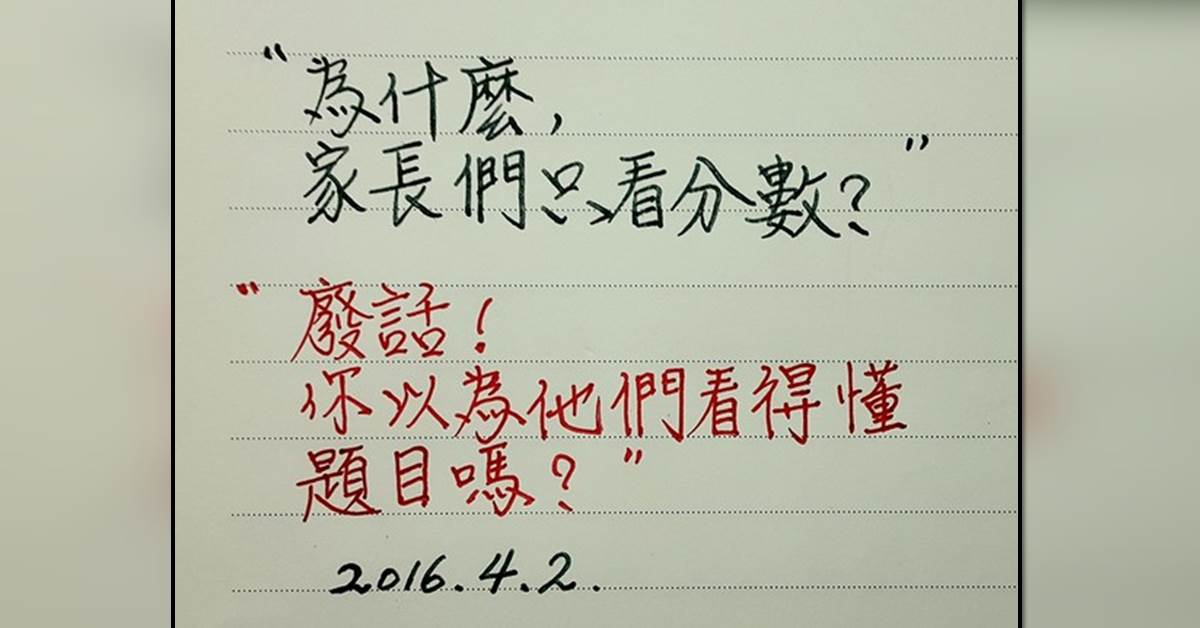 "為什麼,
家長們只看分數?"
"廢話!
你以為他們看得懂
題目嗎?"
2016.4.2.